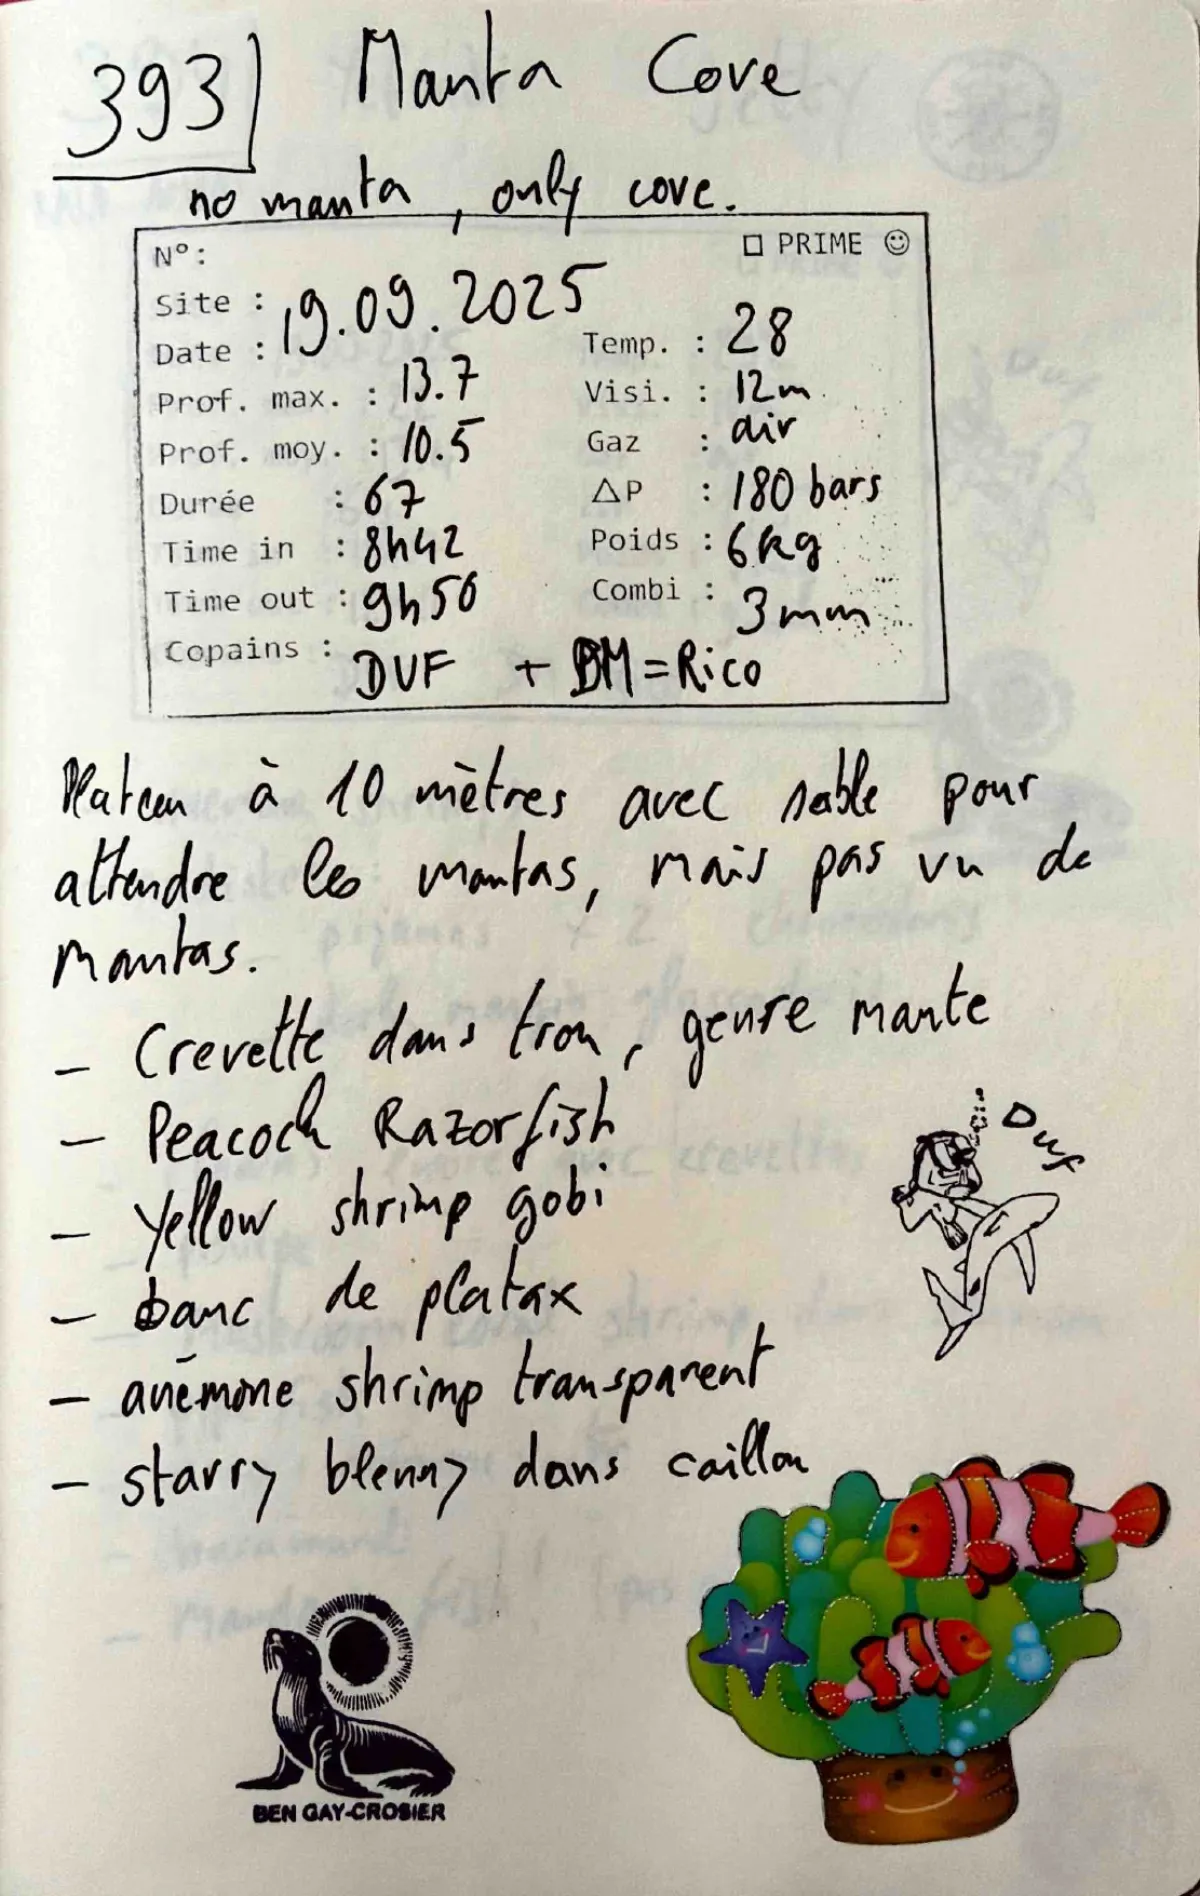 393 Manta Cove
no manta, only cove.
N°:
□ PRIME ☺
Site :
Date : 19.09.2025
Prof. max. : 13.7
Prof. moy. : 10.5
Durée : 67
Time in : 8h42
Time out : 9h50
Temp. : 28
Visi. : 12m
Gaz : air
△P : 180 bars
Poids : 6kg
Combi : 3mm
Copains : DUF + BM=Rico
Plateau à 10 mètres avec sable pour
attendre les mantas, mais pas vu de
mantas.
- Crevette dans trou, genre mante
- Peacock Razorfish
- Yellow shrimp gobi
- banc de platax
- anémone shrimp transparent
- starry blenny dans caillou
Duf
BEN GAY-CROSIER